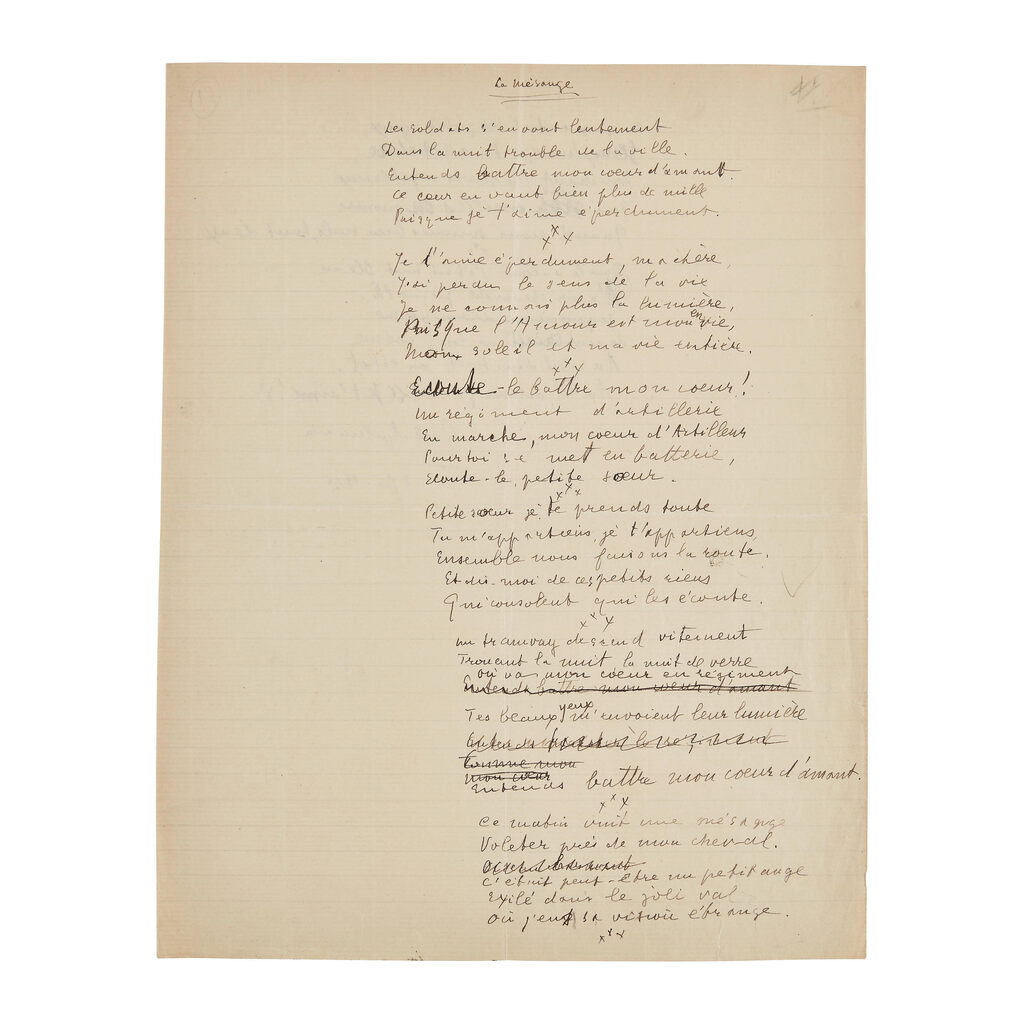 La Mésange
Les soldats s'en vont lentement
Dans la nuit trouble de la ville.
Entends battre mon coeur d'amant.
Ce coeur en vaut bien plus de mille
Puisque je t'aime éperdument.
x x x
Je t'aime éperdument, ma chère,
J'ai perdu le sens de la vie
Je ne connais plus la lumière,
Puisque l'Amour est mon envie,
Mon soleil et ma vie entière.
x x x
Ecoute-le battre mon coeur!
Un régiment d'artillerie
En marche, mon coeur d'Artilleur
Pour toi se met en batterie,
Ecoute-le, petite soeur.
x x x
Petite soeur je te prends toute
Tu m'appartiens, je t'appartiens,
Ensemble nous faisons la route.
Et dis-moi de ces petits riens
Qui consolent qui les écoute.
x x x
Un tramway descend vitement
Trouant la nuit, la nuit de verre
Où va mon coeur en régiment
Entends battre mon coeur d'amant
Tes beaux yeux m'envoient leur lumière
comme mon
mon coeur
Entends battre mon coeur d'amant.
x x x
Ce matin vint une mésange
Voleter près de mon cheval.
C'était peut-être un petit ange
Exilé dans le joli val
Où j'eus sa vision étrange.
x x x